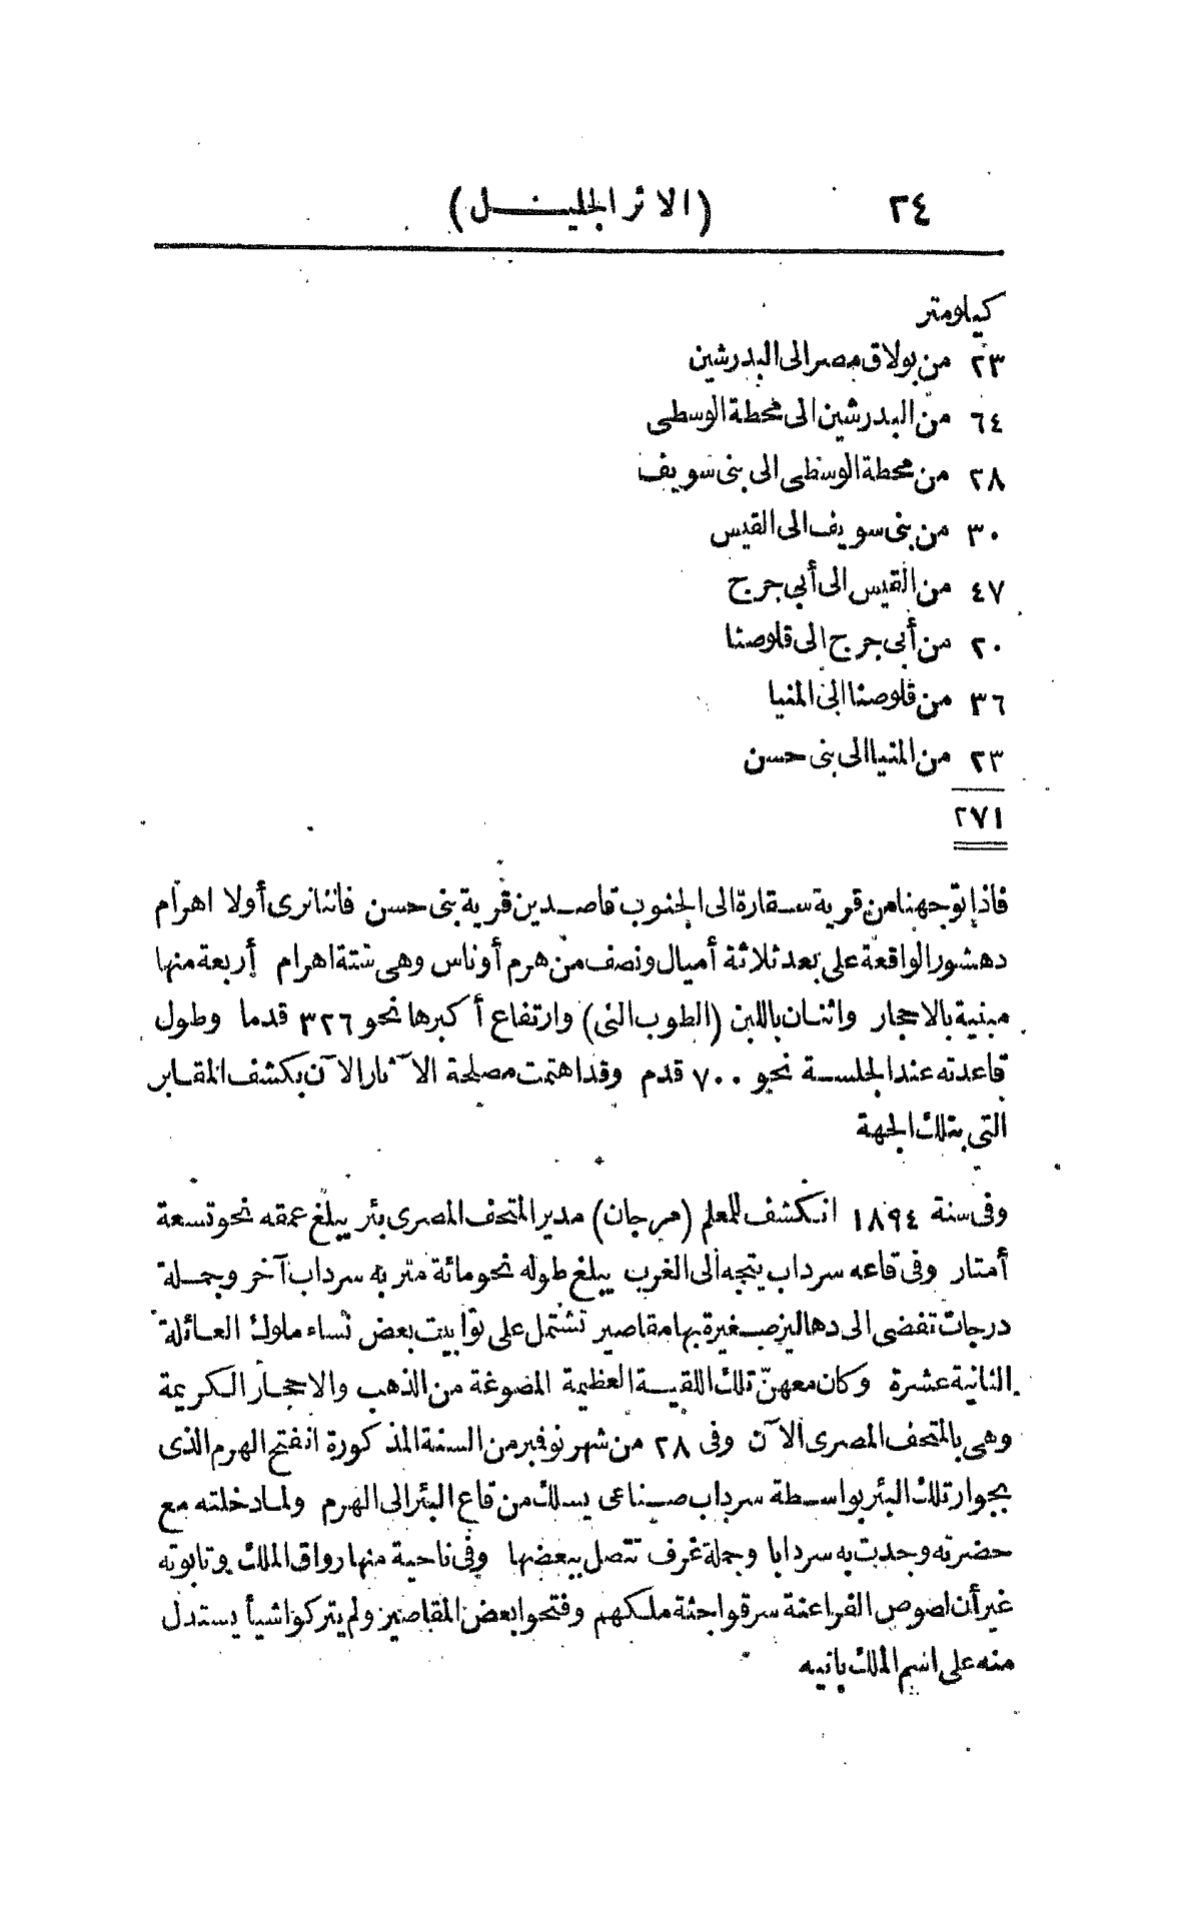 ٢٤ (الاثر الجليل)
كيلومتر
٢٣ من بولاق مصر الى البدرشين
٦٤ من البدرشين الى محطة الوسطى
٢٨ من محطة الوسطى الى بنى سويف
٣٠ من بنى سويف الى القيس
٤٧ من القيس الى أبى جرج
٢٠ من أبى جرج الى قلوصنا
٣٦ من قلوصنا الى المنيا
٢٣ من المنيا الى بنى حسن
٢٧١
فاذا توجهنا من قرية سقارة الى الجنوب قاصدين قرية بنى حسن فاننا نرى أولا اهرام
دهشور الواقعة على بعد ثلاثة أميال ونصف من هرم أوناس وهى ستة اهرام أربعة منها
مبنية بالاحجار واثنان باللبن (الطوب النى) وارتفاع أكبرها نحو ٣٢٦ قدما وطول
قاعدته عند الجلسة نحو ٧٠٠ قدم وقد اهتمت مصلحة الآثار الآن بكشف المقابر
التى بتلك الجهة
وفى سنة ١٨٩٤ انكشف للمعلم (مرجان) مدير المتحف المصرى بئر يبلغ عمقه نحو تسعة
أمتار وفى قاعه سرداب يتجه الى الغرب يبلغ طوله نحو مائة متر به سرداب آخر وجملة
درجات تفضى الى دهاليز صغيرة بها مقاصير تشتمل على توابيت بعض نساء ملوك العائلة
الثانية عشرة وكان معهنّ تلك اللقية العظيمة المصوغة من الذهب والاحجار الكريمة
وهى بالمتحف المصرى الآن وفى ٢٨ من شهر نوفمبر من السنة المذكورة انفتح الهرم الذى
بجوار تلك البئر بواسطة سرداب صناعى يسلك من قاع البئر الى الهرم ولما دخلته مع
حضرته وجدت به سردابا وجملة غرف تتصل ببعضها وفى ناحية منها رواق الملك وتابوته
غير أن لصوص الفراعنة سرقوا جثة ملكهم وفتحوا بعض المقاصير ولم يتركوا شيأ يستدل
منه على اسم الملك بانيه